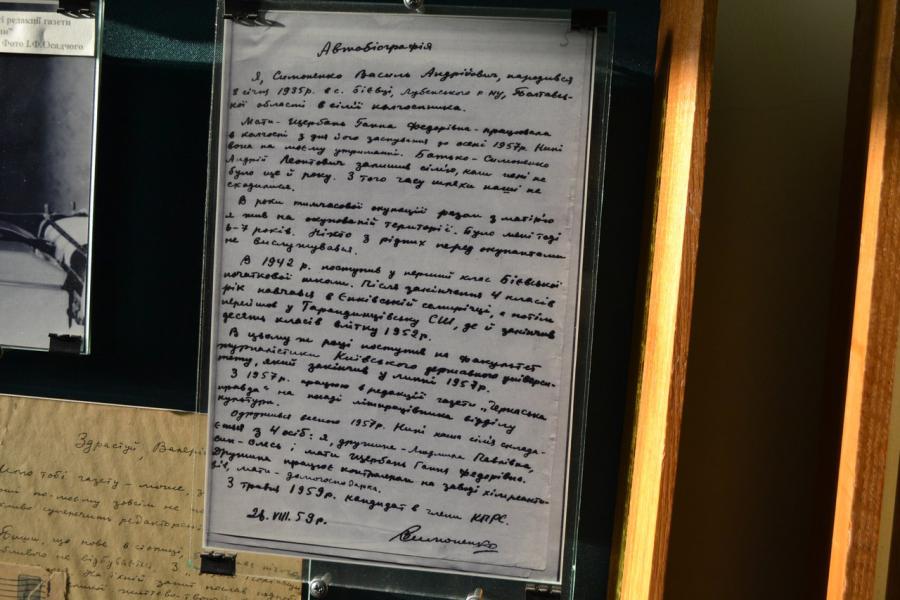 і редакції газети
Фото І.Ф.Осадчого
Автобіографія
Я, Симоненко Василь Андрійович, народився
8 січня 1935р. в с. Бієвці, Лубенського р-ну, Полтавсь-
кої області в сім'ї колгоспника.
Мати - Щербань Ганна Федорівна - працювала
в колгоспі з дня його заснування до осені 1957р. Нині
вона на моєму утриманні. Батько - Симоненко
Андрій Леонтович залишив сім'ю, коли мені не
було ще й року. З того часу шляхи наші не
сходилися.
В роки тимчасової окупації разом з матір'ю
я жив на окупованій території. Було мені тоді
6-7 років. Ніхто з рідних перед окупантами
не вислужувався.
В 1942 р. поступив у перший клас Бієвської
початкової школи. Після закінчення 4 класів
рік навчався в Єнківській семирічці, а потім
перейшов у Тарандинцівську СШ, де й закінчив
десять класів влітку 1952р.
В цьому ж році поступив на факультет
журналістики Київського державного універси-
тету, який закінчив у липні 1957р.
З 1957р. працюю в редакції газети „Черкаська
правда" на посаді літпрацівника відділу
культури.
Одружився весною 1957р. Нині наша сім'я склада-
ється з 4 осіб: я, дружина - Людмила Павлівна,
син - Олесь і мати Щербань Ганна Федорівна.
Дружина працює контролером на заводі хімреакти-
вів, мати - домогосподарка.
З травня 1959р. кандидат в члени КПРС.
26.VIII.59р.
Симоненко
Здрастуй, Валері
тобі газету - лише, з
по-моєму зовсім не
суперечить редакторові
Пиши, що нове в столиці,
не відбува